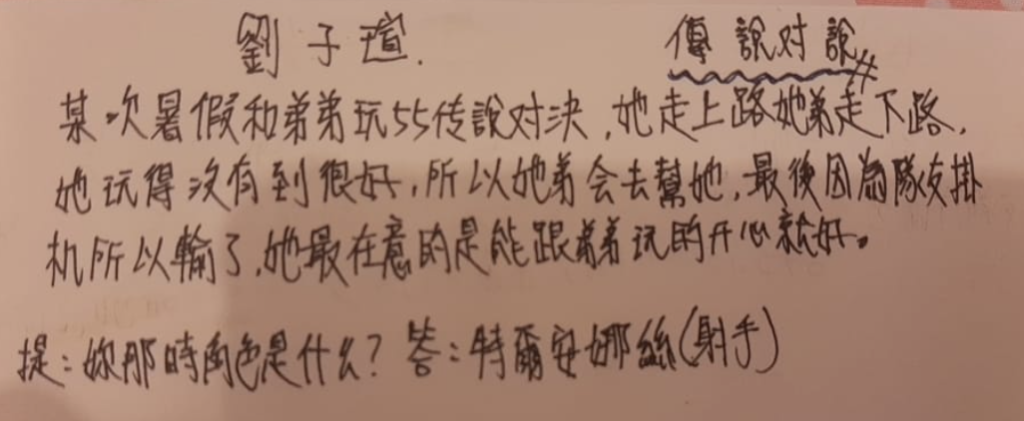 劉子瑄. 傳說对說
某次暑假和弟弟玩55传說对决,她走上路她弟走下路,
她玩得沒有到很好,所以她弟会去幫她,最後因為隊友掛
机所以輸了,她最在意的是能跟弟弟玩的开心就好。
提:妳那時角色是什么?答:特爾安娜絲(射手)